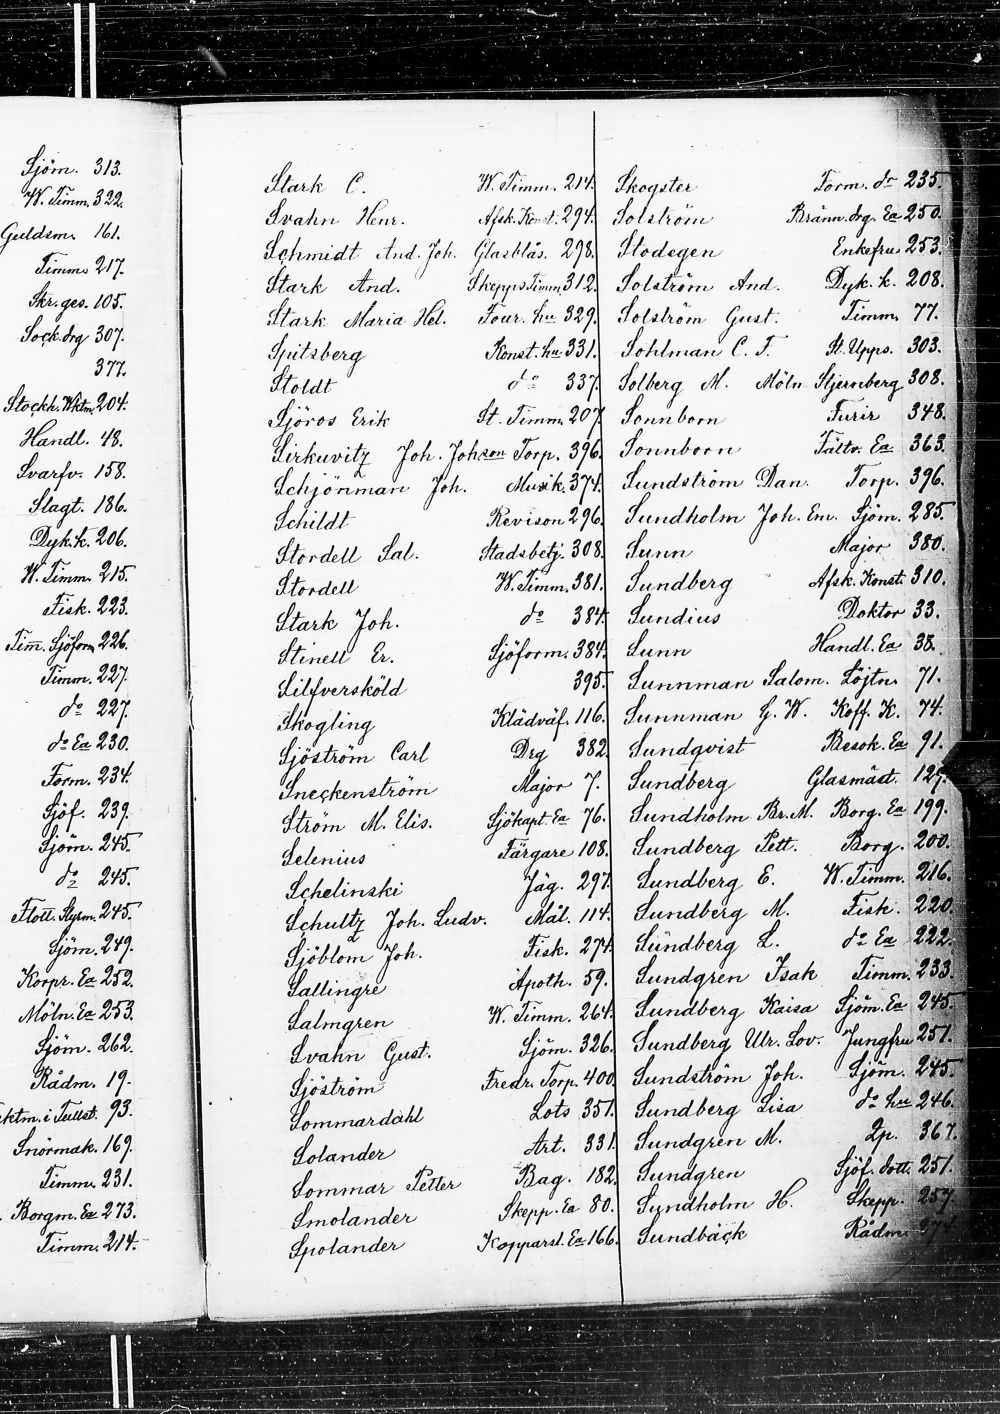 Sjöm. 313.
W. Timm. 322.
Guldsm. 161.
Timm. 217.
Skr. ges. 105.
Sock. drg 307.
377.
Stockh. Wktm. 204.
Handl. 48.
Svarfv. 158.
Slagt. 186.
Dyk. k. 206.
W. Timm. 215.
Fisk. 223.
Tim̅. Sjöform. 226.
Timm. 227.
do 227.
do Ea 230.
Form. 234.
Sjöf. 239.
Sjöm. 245.
do 245.
Flott. Styrm. 245.
Sjöm. 249.
Korpr. Ea 252.
Möln. Ea 253.
Sjöm. 262.
Rådm. 19.
ktm. i Tullst. 93.
Snörmak. 169.
Timm. 231.
Borgm. Ea 273.
Timm. 214.
Stark C. W. Timm. 214.
Svahn Henr. Afsk. Konst. 294.
Schmidt And. Joh. Glasblås. 298.
Stark And. Skepps Timm. 312.
Stark Maria Hel. Four. hu 329.
Spitsberg Konst. hu 331.
Stoldt do 337.
Sjöros Erik St. Timm. 207.
Sirkuvitz Joh. Johson Torp. 396.
Schjönman Joh. Musik. 374.
Schildt Revison 296.
Stordell Sal. Stadsbetj. 308.
Stordell W. Timm. 381.
Stark Joh. do 384.
Stinell Er. Sjöform. 384.
Silfversköld 395.
Skogling Klädväf. 116.
Sjöström Carl Drg 382.
Sneckenström Major 7.
Ström M. Elis. Sjökapt. Ea 76.
Selenius Färgare 108.
Schelinski Jäg. 297.
Schultz Joh. Ludv. Mål. 114.
Sjöblom Joh. Fisk. 274.
Sallingre Apoth. 59.
Salmgren W. Timm. 264.
Svahn Gust. Sjöm. 326.
Sjöström Fredr. Torp. 400.
Sommardahl Lots 351.
Solander Art. 331.
Sommar Petter Bag. 182.
Smolander Skepp. Ea 80.
Spolander Kopparsl. Ea 166.
Skogster Form. do 235.
Solström Bränn. drg. Ea 250.
Stodegen Enkefru 253.
Solström And. Dyk. k. 208.
Solström Gust. Timm. 77.
Sohlman C. F. St. Upps. 303.
Solberg M. Möln Stjernberg 308.
Sonnborn Furir 348.
Sonnborn Fältv. Ea 363.
Sundström Dan. Torp. 396.
Sundholm Joh. Em. Sjöm. 285.
Sunn Major 380.
Sundberg Afsk. Konst. 310.
Sundius Doktor 33.
Sunn Handl. Ea 38.
Sunnman Salom. Löjtn. 71.
Sunnman G. W. Koff. K. 74.
Sundqvist Besök. Ea 91.
Sundberg Glasmäst. 129.
Sundholm Br. M. Borg. Ea 199.
Sundberg Pett. Borg. 200.
Sundberg E. W. Timm. 216.
Sundberg M. Fisk. 220.
Sundberg L. do Ea 222.
Sundgren Isak Timm. 233.
Sundberg Kaisa Sjöm. Ea 245.
Sundberg Ulr. Lov. Jungfru 251.
Sundström Joh. Sjöm. 245.
Sundberg Lisa do hu 246.
Sundgren M. 2p. 367.
Sundgren Sjöf. dott. 251.
Sundholm H. Skepp. 257.
Sundbäck Rådm. 374.